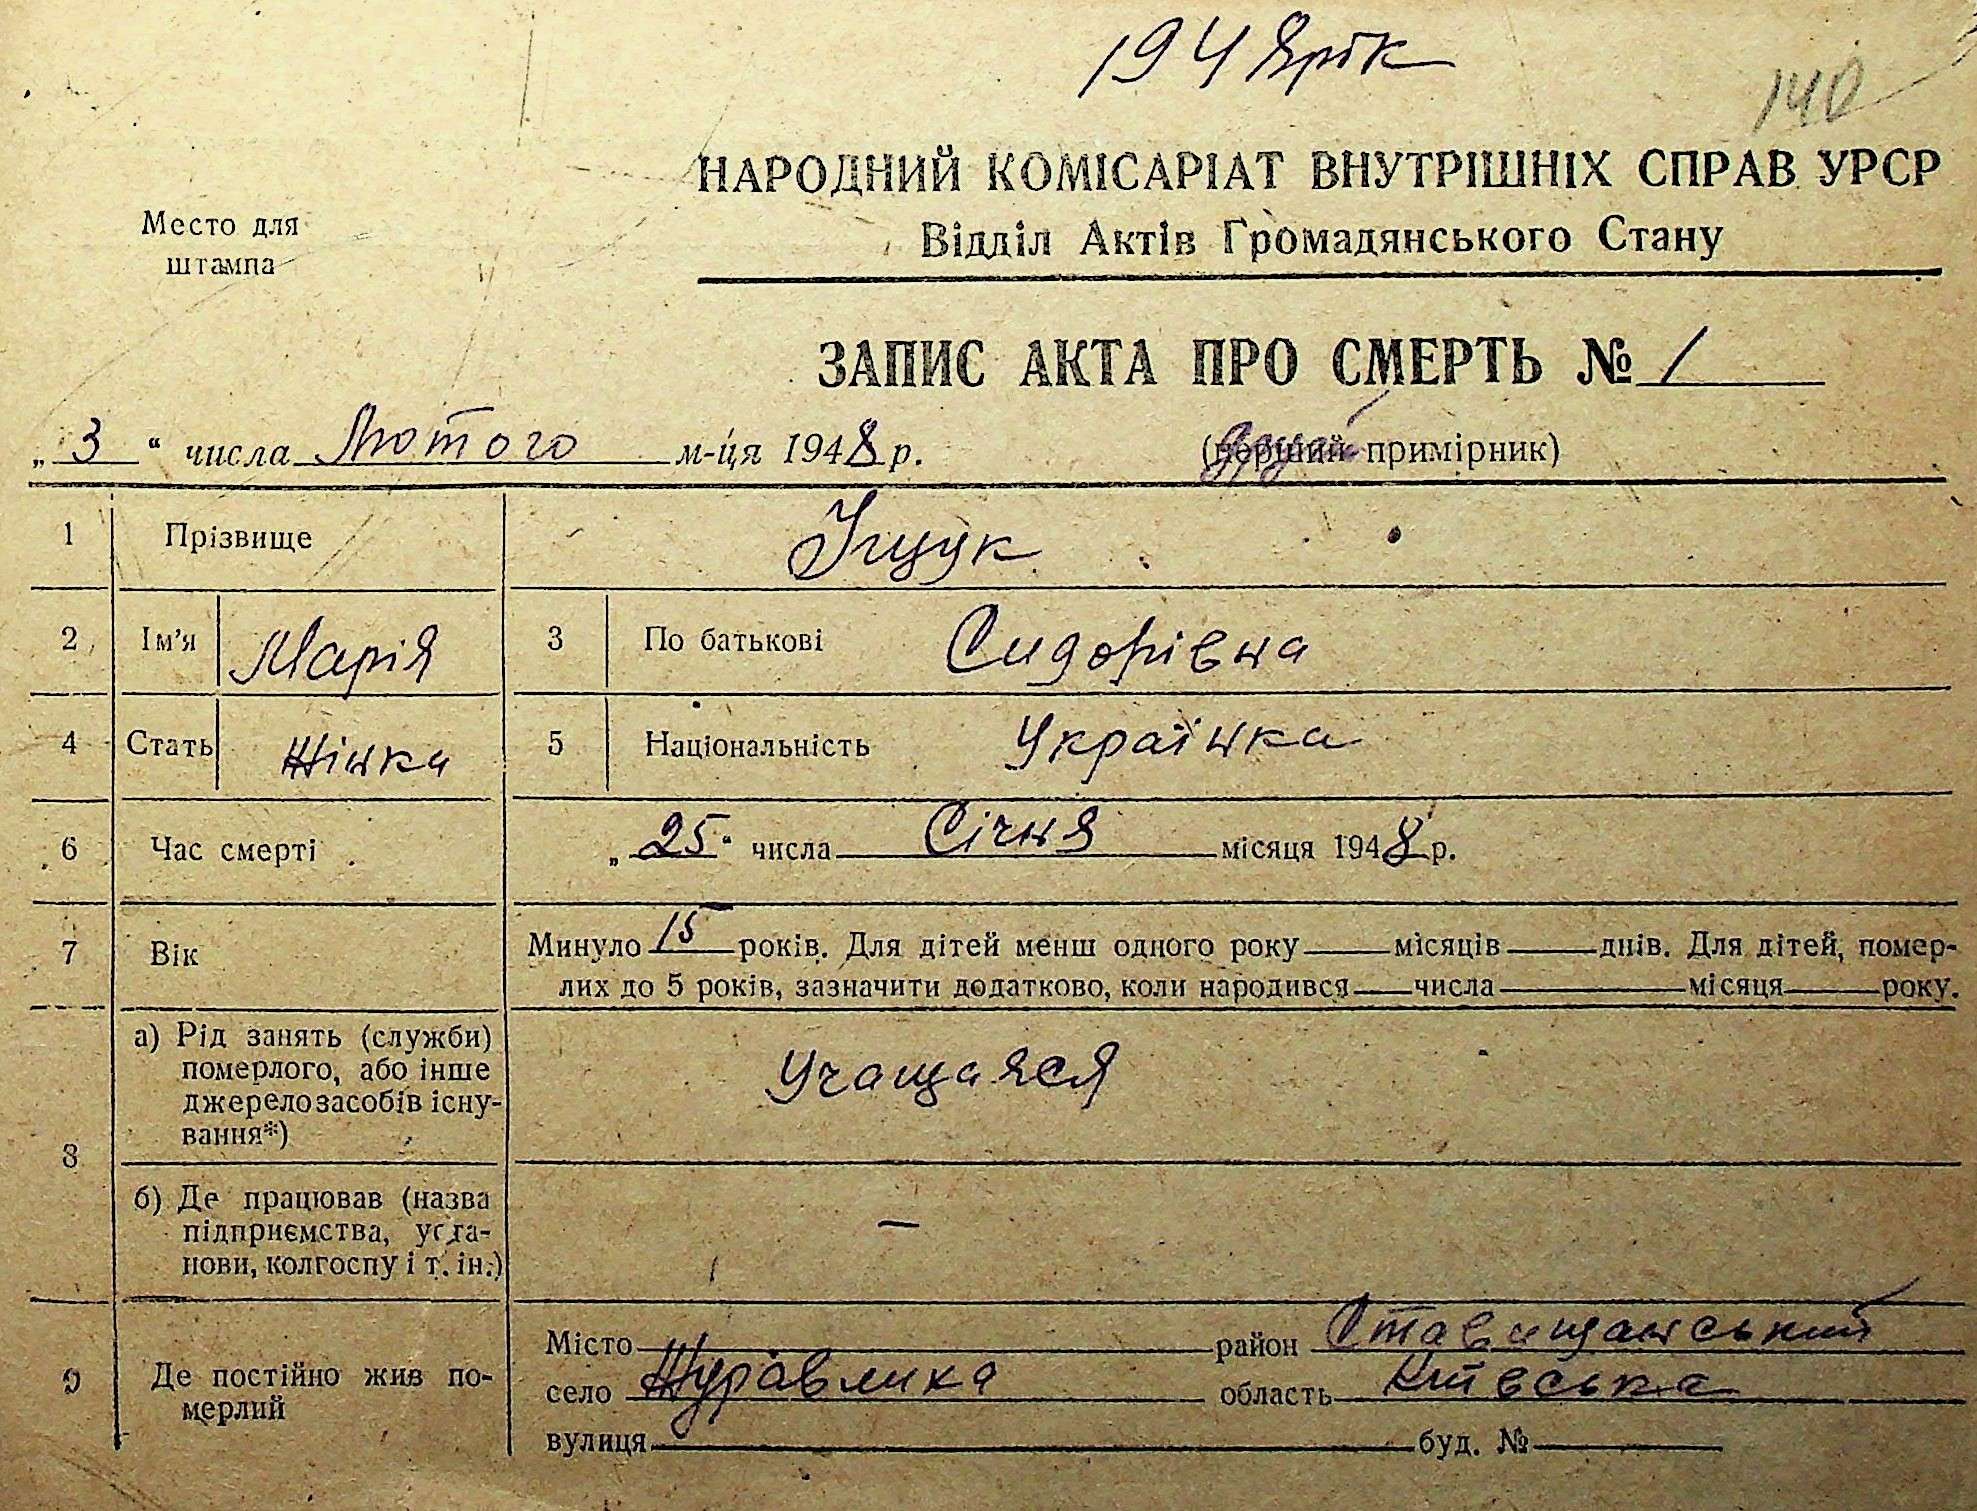 1948 рік
140
НАРОДНИЙ КОМІСАРІАТ ВНУТРІШНІХ СПРАВ УРСР
Відділ Актів Громадянського Стану
Место для
штампа
ЗАПИС АКТА ПРО СМЕРТЬ № 1
„ 3 “ числа Лютого м-ця 1948 р. (перший другий примірник)
1 Прізвище Іщук
2 Ім'я Марія 3 По батькові Сидорівна
4 Стать Жінка 5 Національність Українка
6 Час смерті „ 25 “ числа Січня місяця 1948 р.
7 Вік Минуло 15 років. Для дітей менш одного року місяців днів. Для дітей, помер-
лих до 5 років, зазначити додатково, коли народився числа місяця року.
8 а) Рід занять (служби)
померлого, або інше
джерело засобів існу-
вання*) Учащаяся
б) Де працював (назва
підприємства, уста-
нови, колгоспу і т. ін.) —
9 Де постійно жив по-
мерлий
Місто район Ставищанський
село Журавлика область Київська
вулиця буд. №